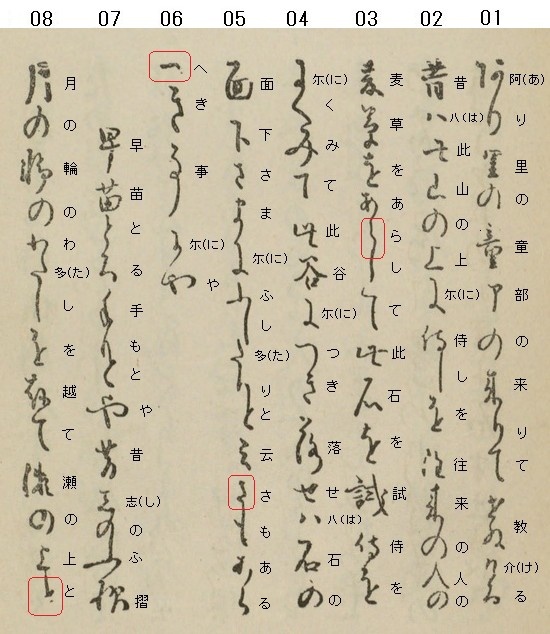 01
阿(あ)り里の童部の来りて教介(け)る
02
昔八(は)此山の上尔(に)侍しを往来の人の
03
麦草をあらして此石を試侍を
04
尔(に)くみて此谷尔(に)つき落せ八(は)石の
05
面下さま尔(に)ふし多(た)りと云さもある
06
へき事尔(に)や
07
早苗とる手もとや昔志(し)のふ摺
08
月の輪のわ多(た)しを越て瀬の上と